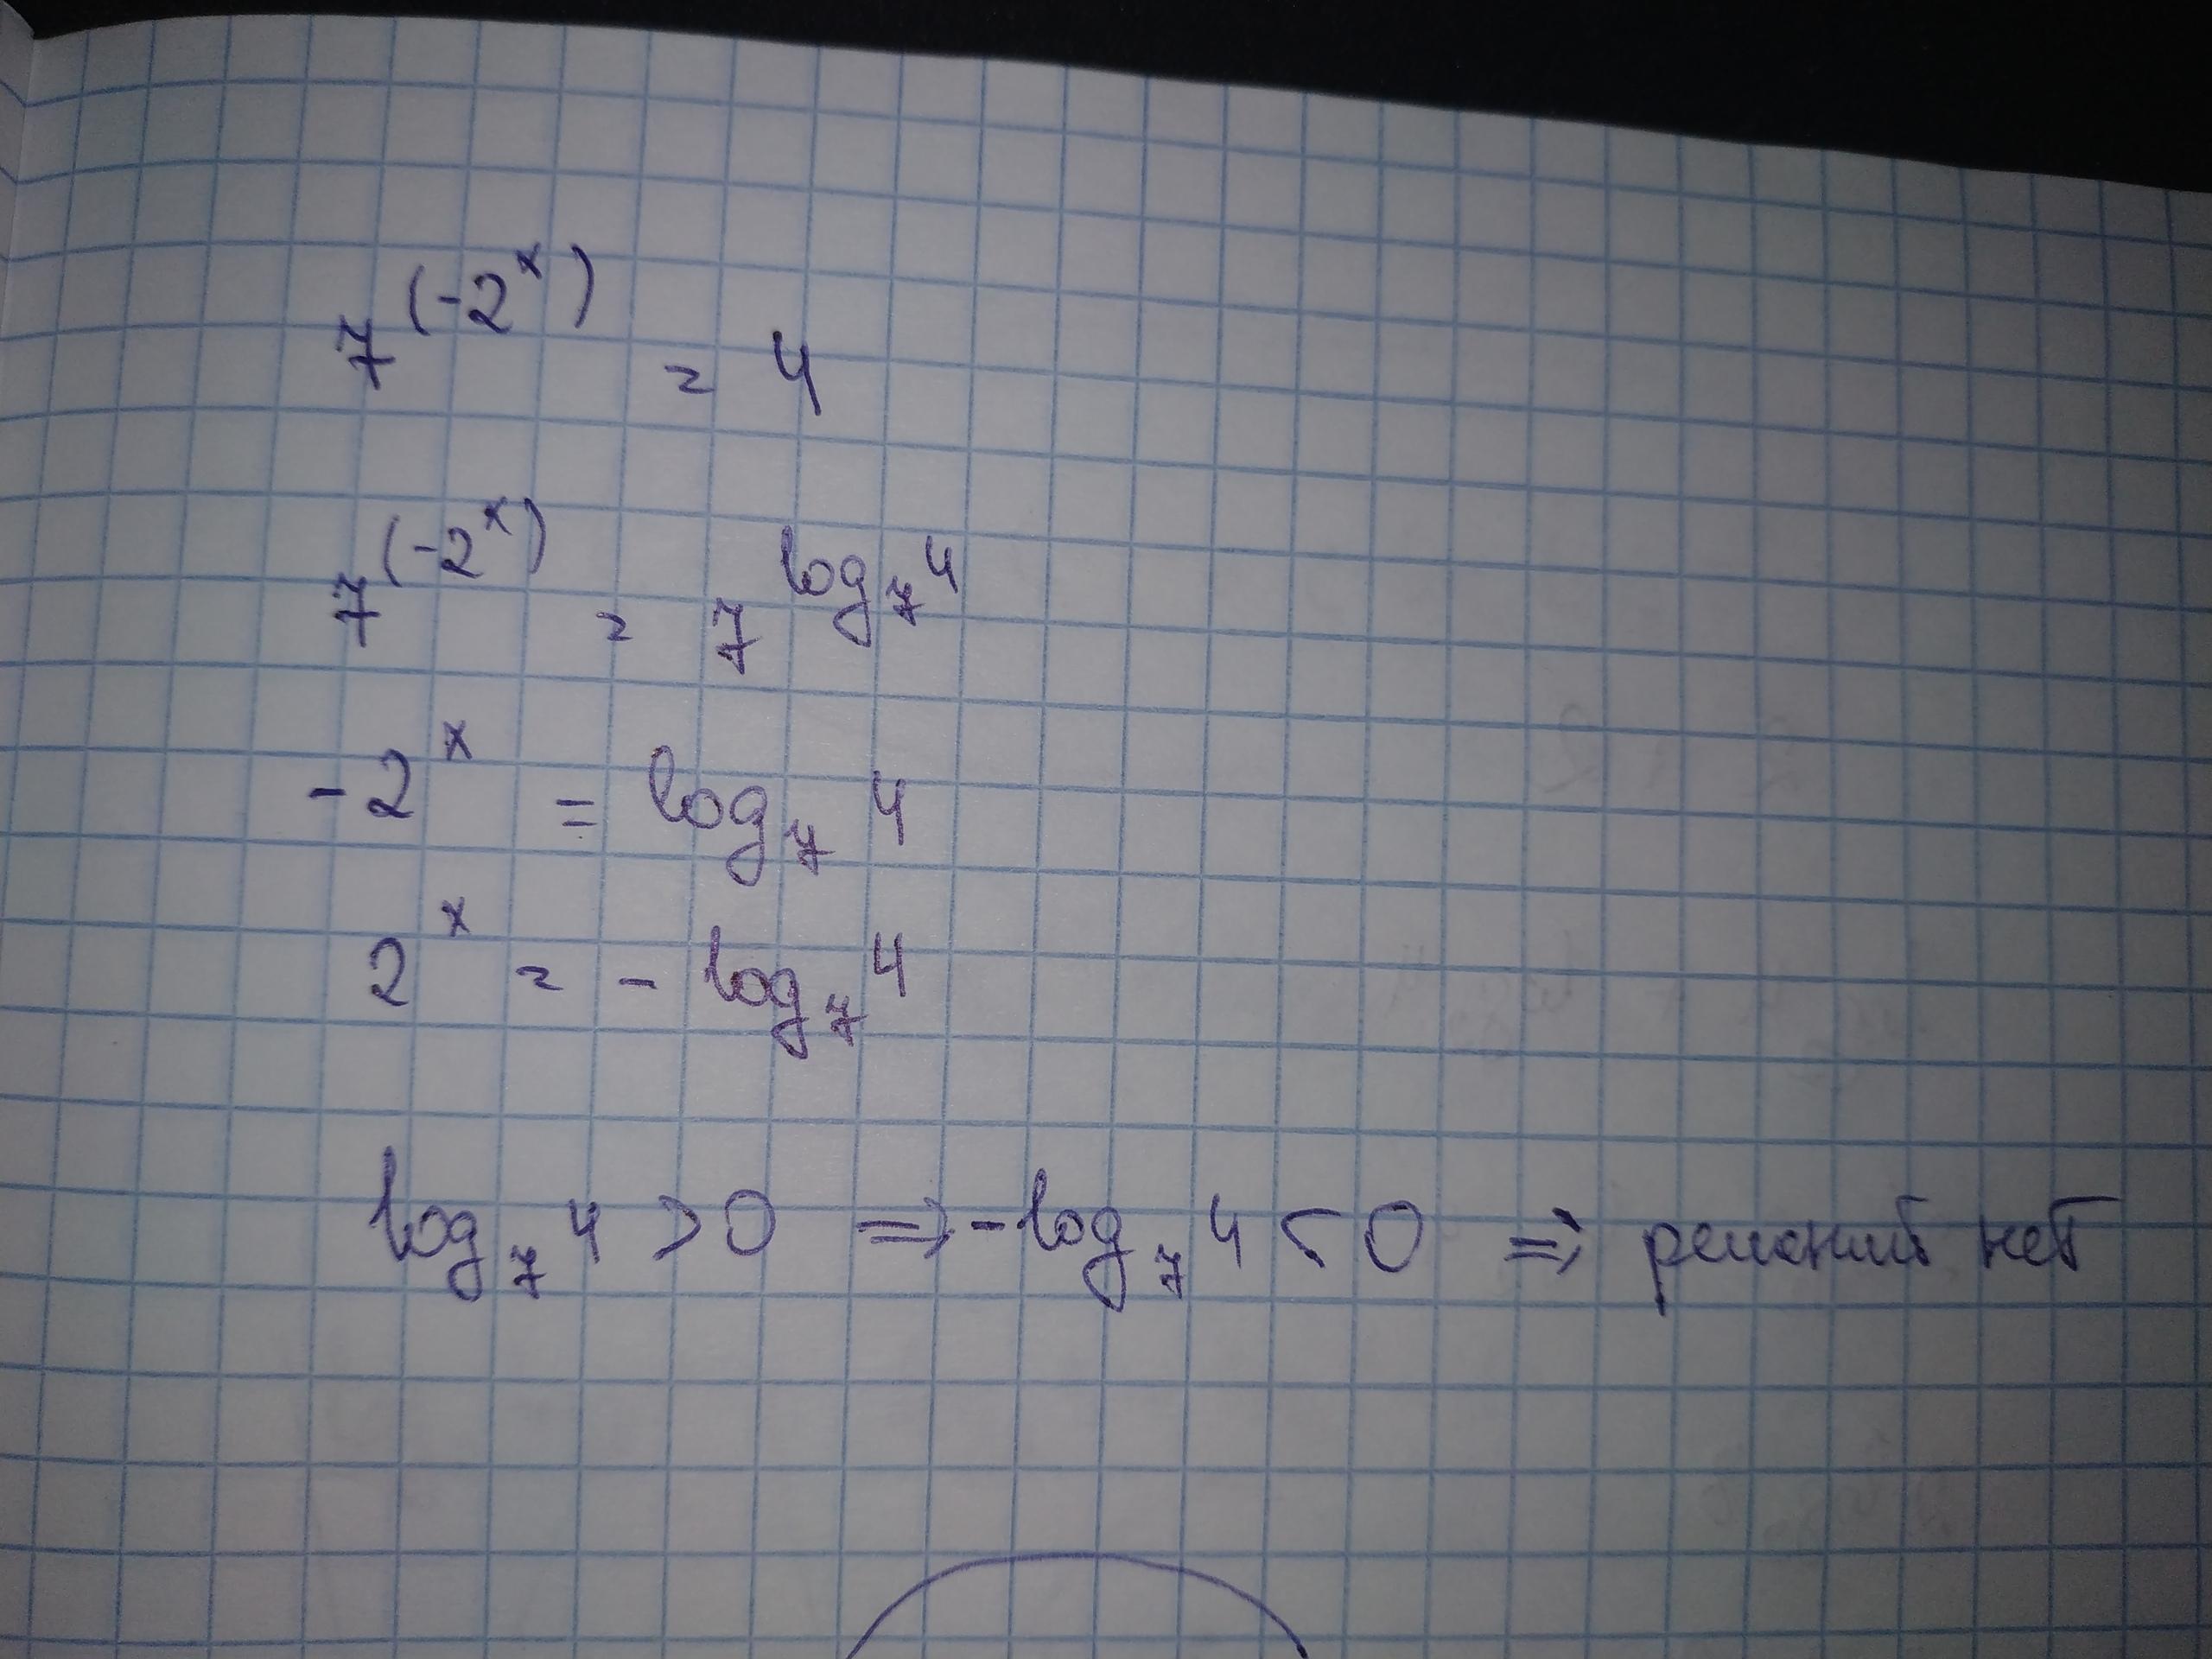 7^(-2^x) = 4
7^(-2^x) = 7^log₇4
-2^x = log₇ 4
2^x = - log₇ 4
log₇ 4 > 0 ⇒ -log₇ 4 < 0 ⇒ решений нет